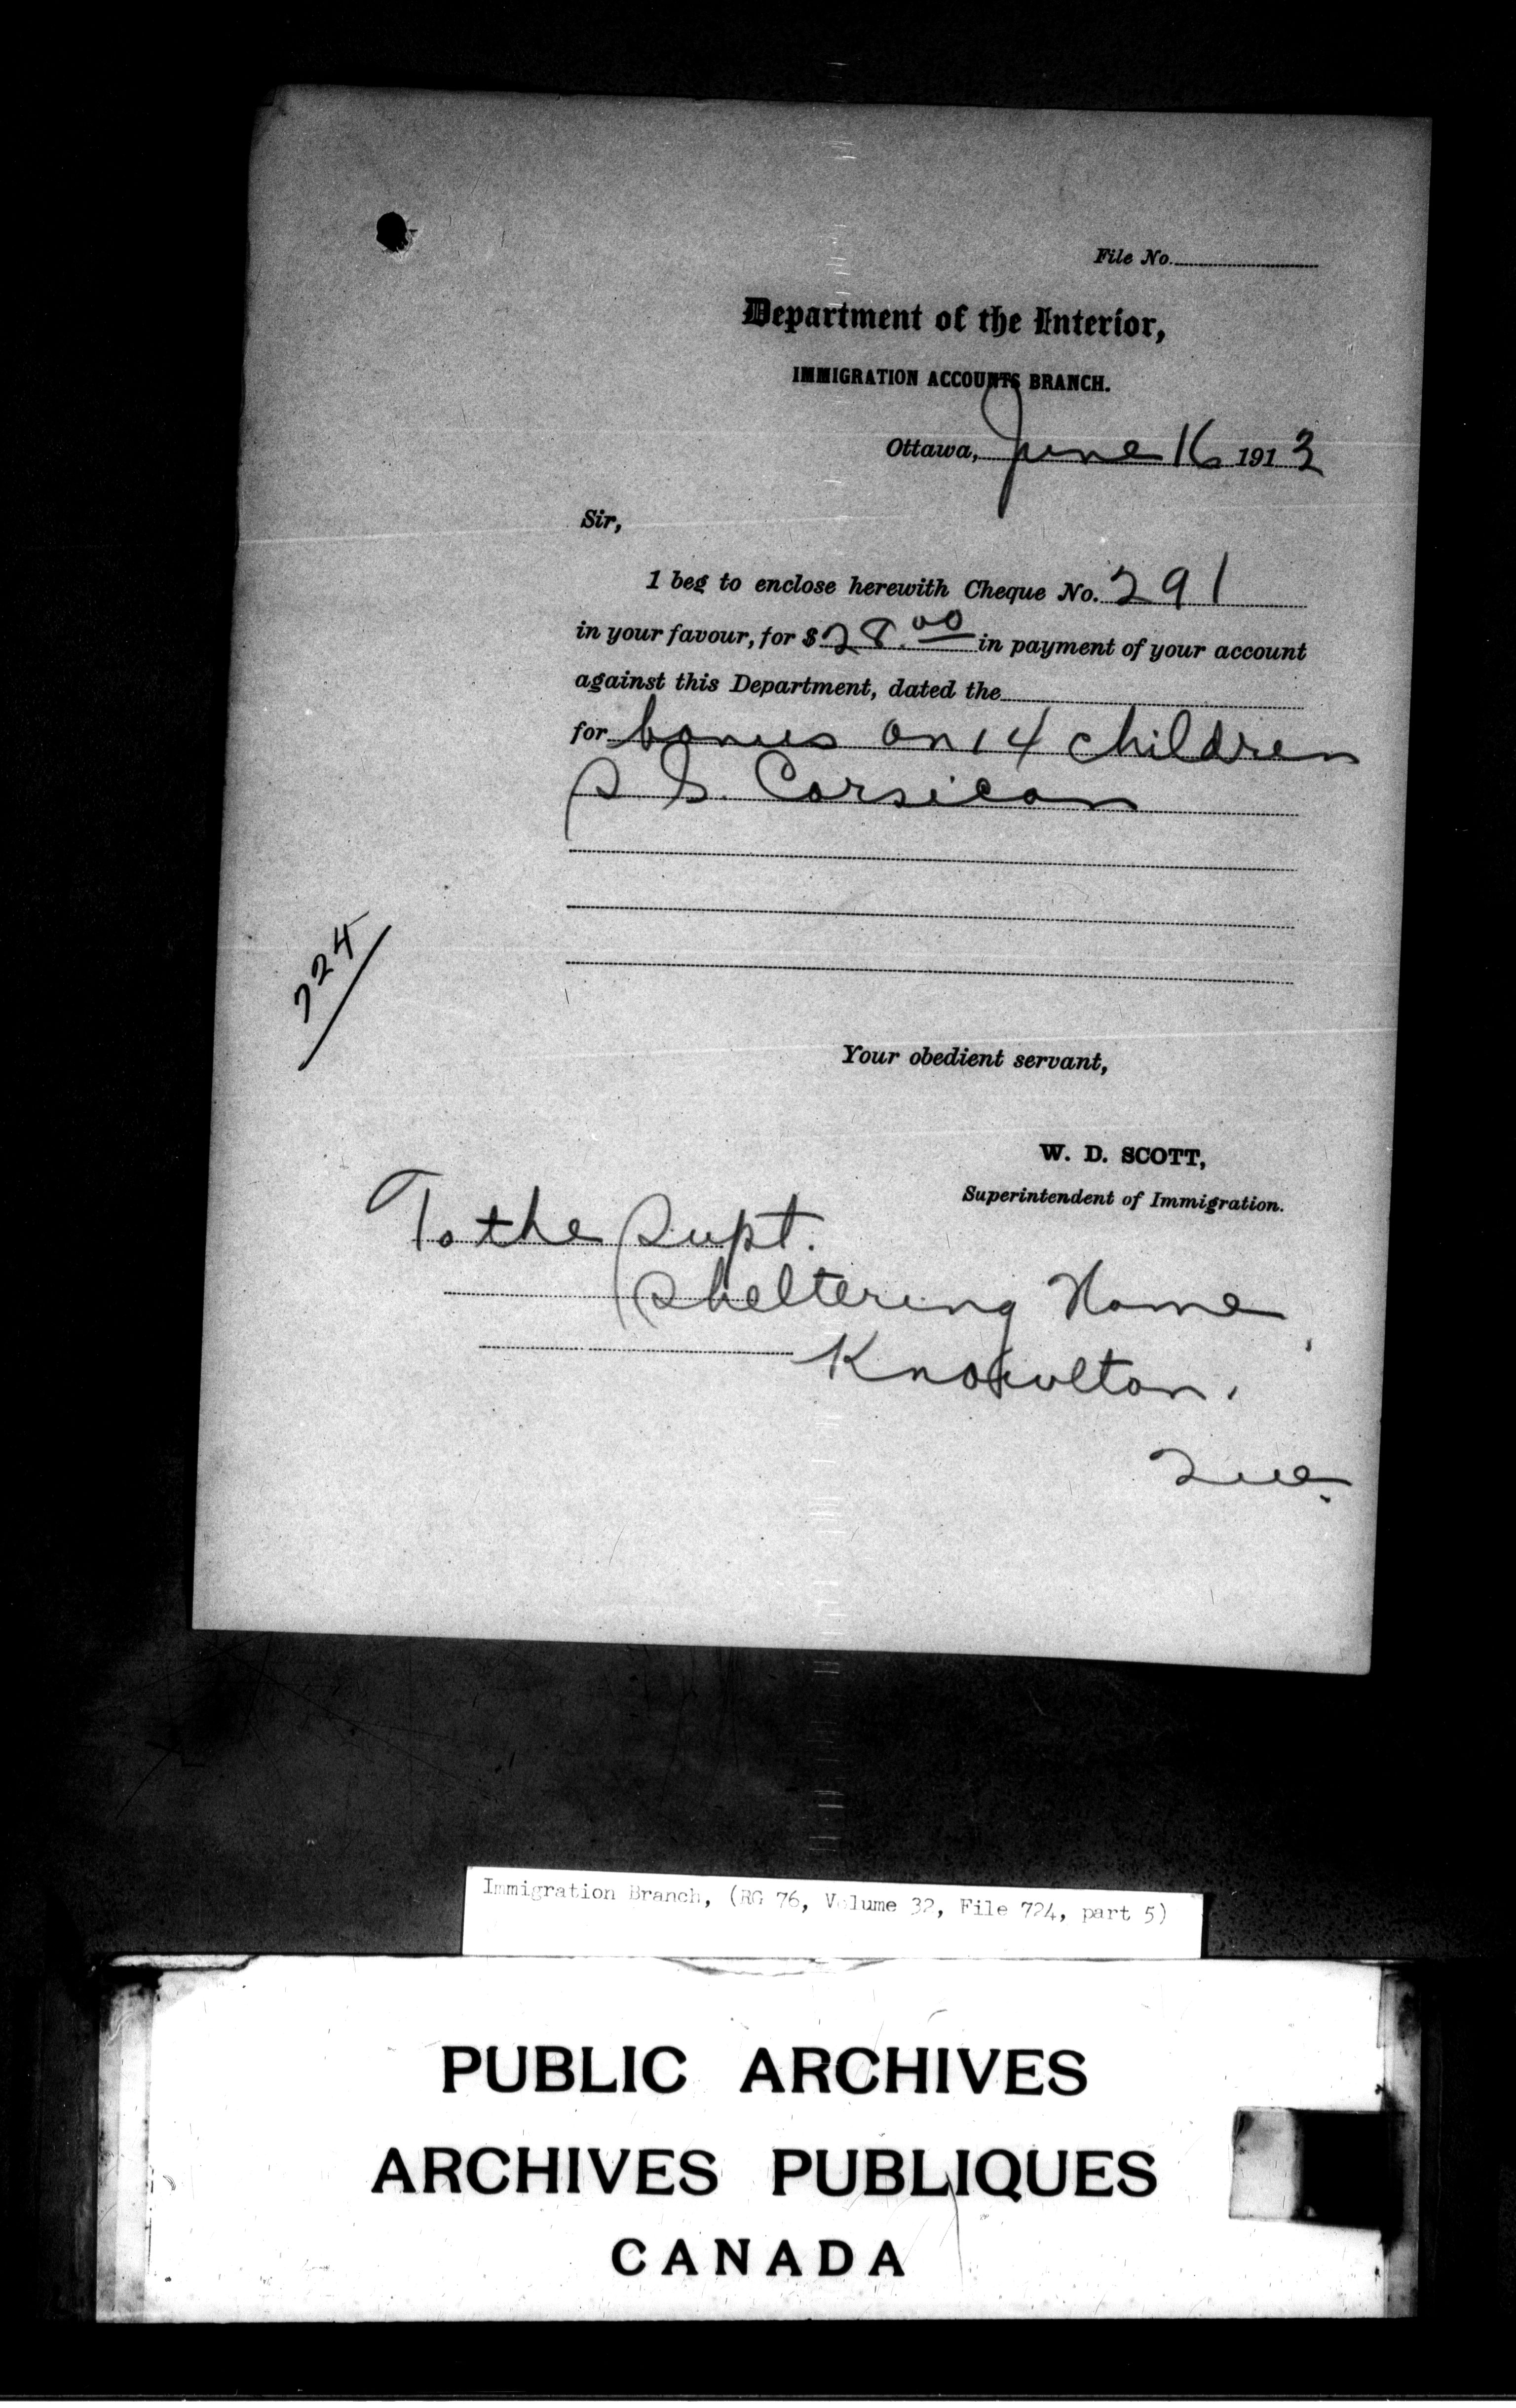 File No.
Department of the Interior,
IMMIGRATION ACCOUNTS BRANCH.
Ottawa, June 16 1913
Sir,
I beg to enclose herewith Cheque No. 291
in your favour, for $ 28.00 in payment of your account
against this Department, dated the
for bonus on 14 children
S S. Corsican
724
Your obedient servant,
W. D. SCOTT,
Superintendent of Immigration.
To the Supt.
Sheltering Home,
Knowlton.
Que.
Immigration Branch, (RG 76, Volume 32, File 724, part 5)
PUBLIC ARCHIVES
ARCHIVES PUBLIQUES
CANADA